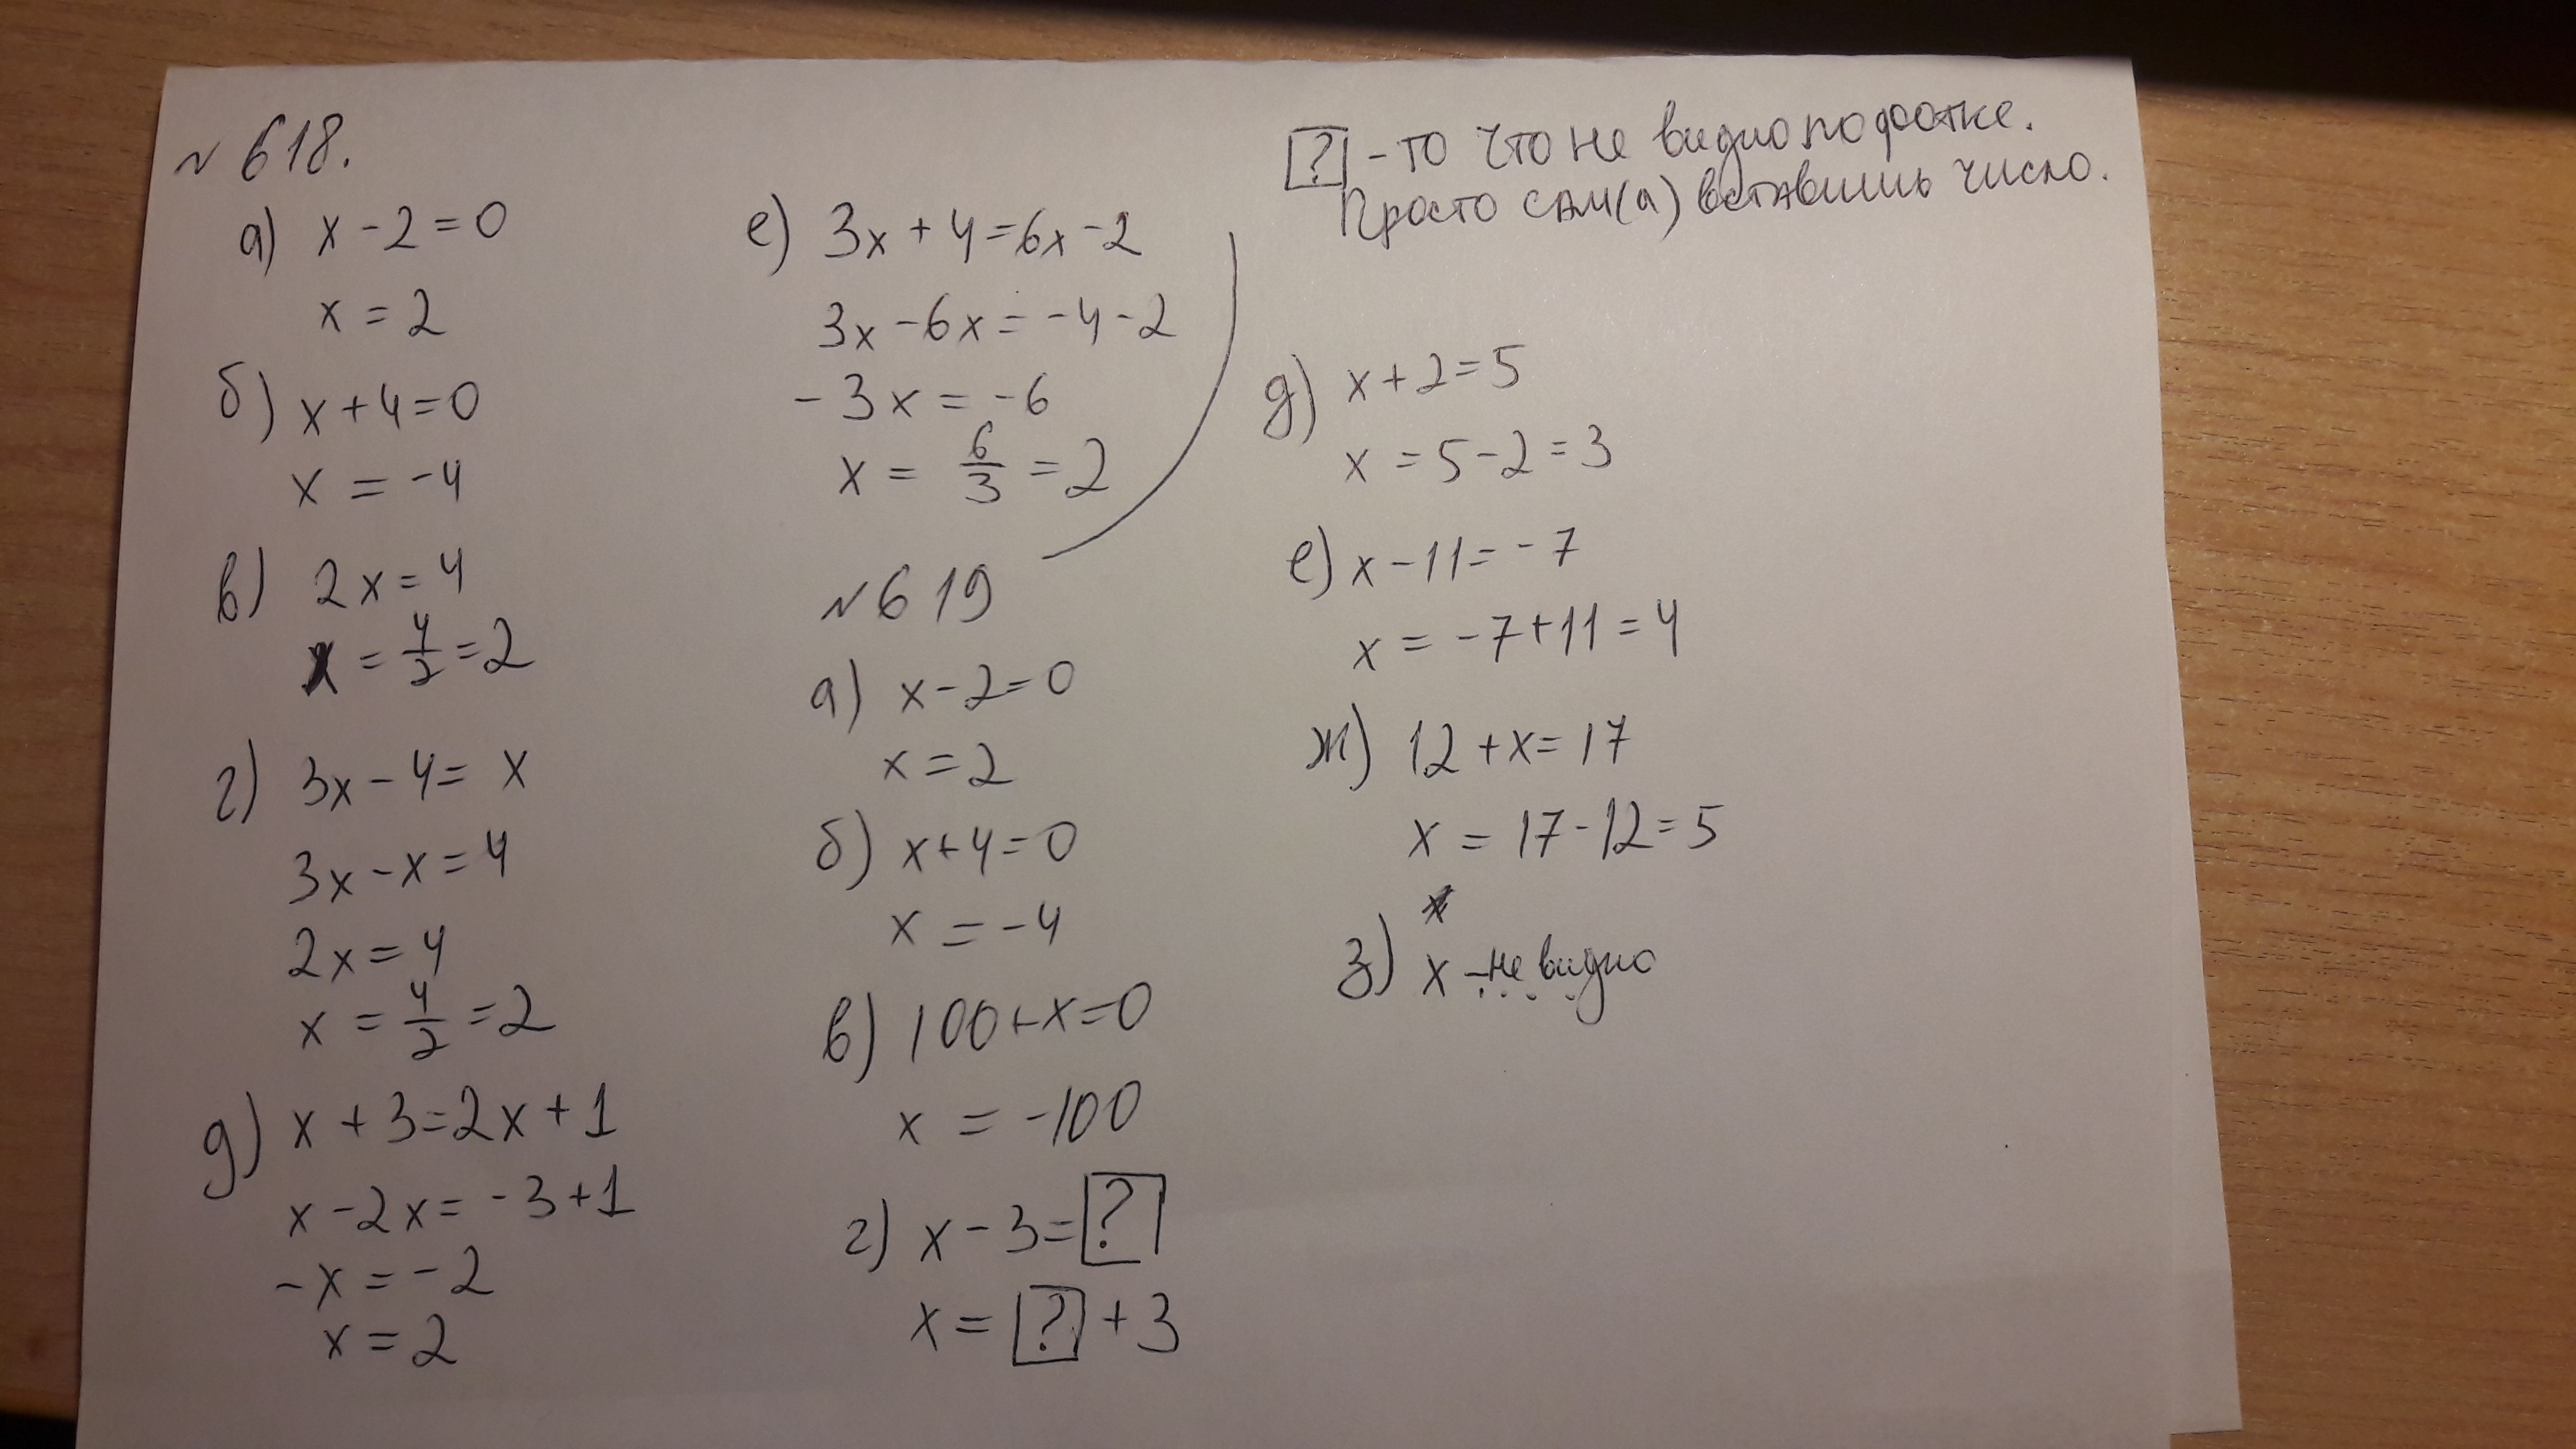 № 618.
а) x - 2 = 0
x = 2
б) x + 4 = 0
x = -4
в) 2x = 4
x = 4/2 = 2
г) 3x - 4 = x
3x - x = 4
2x = 4
x = 4/2 = 2
д) x + 3 = 2x + 1
x - 2x = -3 + 1
-x = -2
x = 2
е) 3x + 4 = 6x - 2
3x - 6x = -4 - 2
-3x = -6
x = 6/3 = 2
№ 619
а) x - 2 = 0
x = 2
б) x + 4 = 0
x = -4
в) 100 + x = 0
x = -100
г) x - 3 = ?
x = ? + 3
? - то что не видно по фотке.
Просто сам(а) вставишь число.
д) x + 2 = 5
x = 5 - 2 = 3
е) x - 11 = -7
x = -7 + 11 = 4
ж) 12 + x = 17
x = 17 - 12 = 5
з) x - не видно